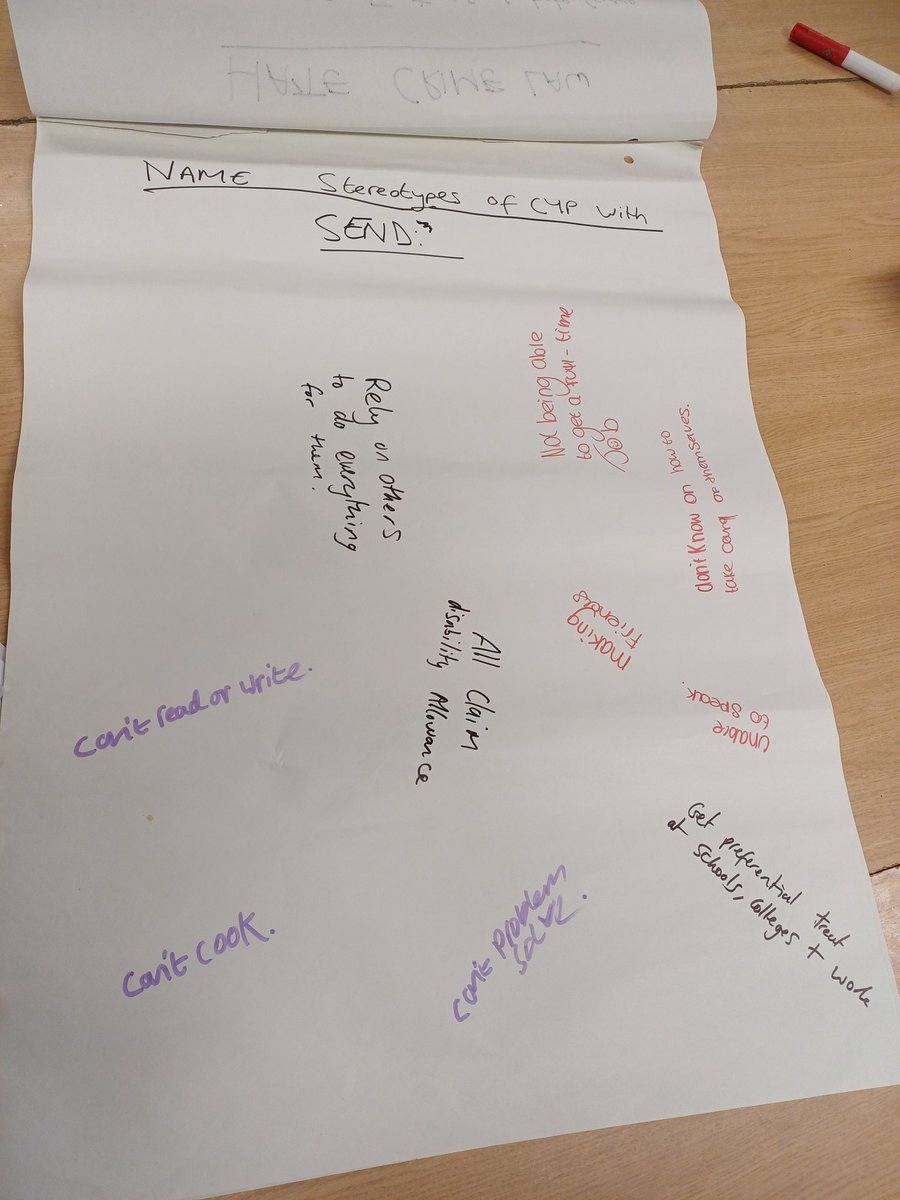 HATE CRIME LAW
NAME Stereotypes of CYP with
SEND?
Not being able
to get a full-time
Job
don't know on how to
take care of themselves.
Rely on others
to do everything
for them.
making
friends
All Claim
disability Allowance
unable
to speak.
Can't read or write.
Get preferential treat
at schools, colleges + work
Can't problem
solve.
Can't cook.